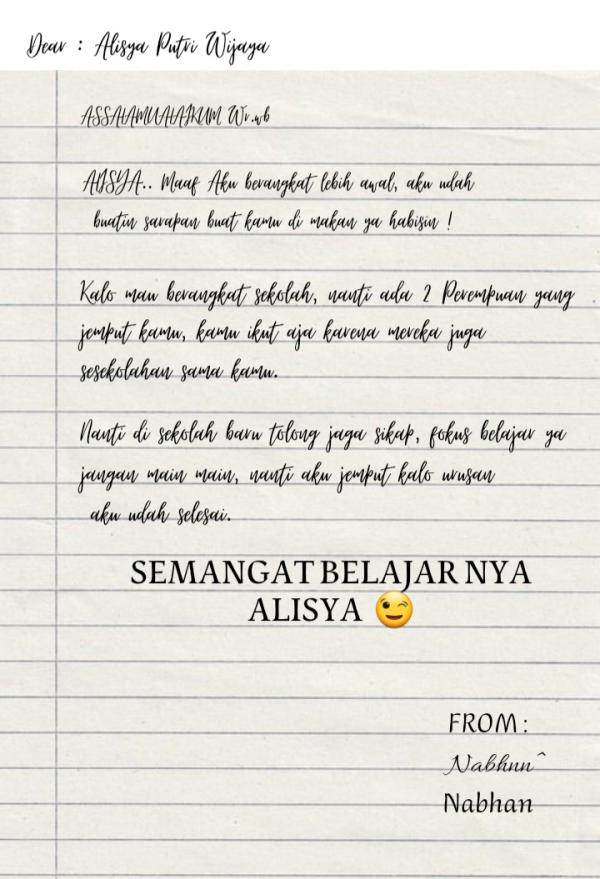 Dear : Alisya Putri Wijaya
ASSALAMUALAIKUM Wr.wb
ALISYA.. Maaf Aku berangkat lebih awal, aku udah
buatin sarapan buat kamu di makan ya habisin !
Kalo mau berangkat sekolah, nanti ada 2 Perempuan yang
jemput kamu, kamu ikut aja karena mereka juga
sesekolahan sama kamu.
Nanti di sekolah baru tolong jaga sikap, fokus belajar ya
jangan main main, nanti aku jemput kalo urusan
aku udah selesai.
SEMANGAT BELAJAR NYA
ALISYA 😉
FROM :
Nabhnn^
Nabhan